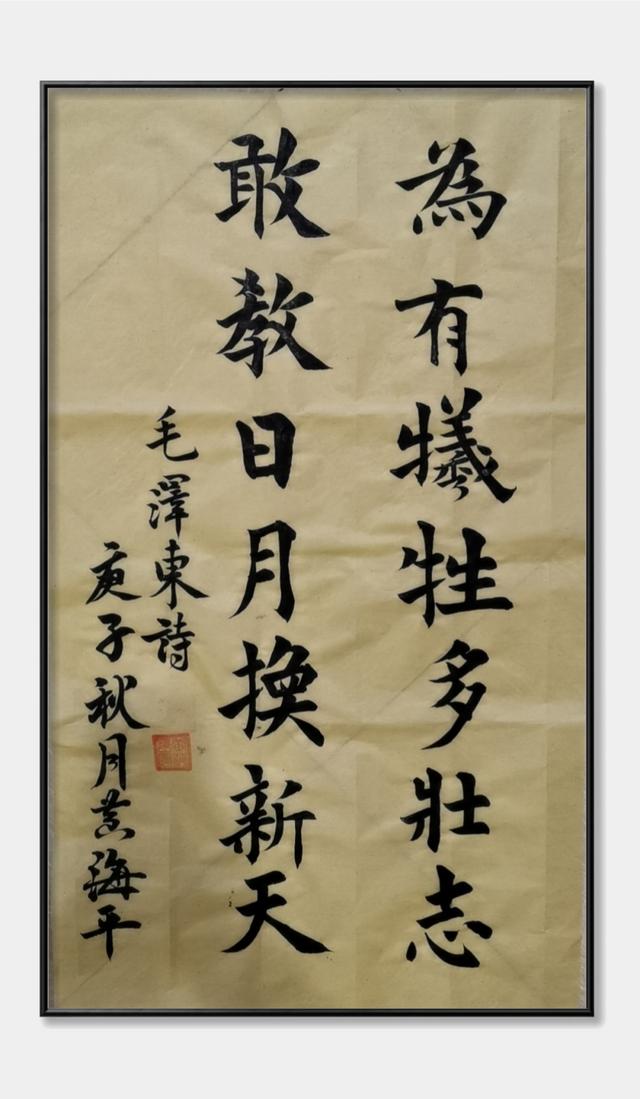 為有犧牲多壯志
敢教日月換新天
毛澤東詩
庚子秋月黄海平